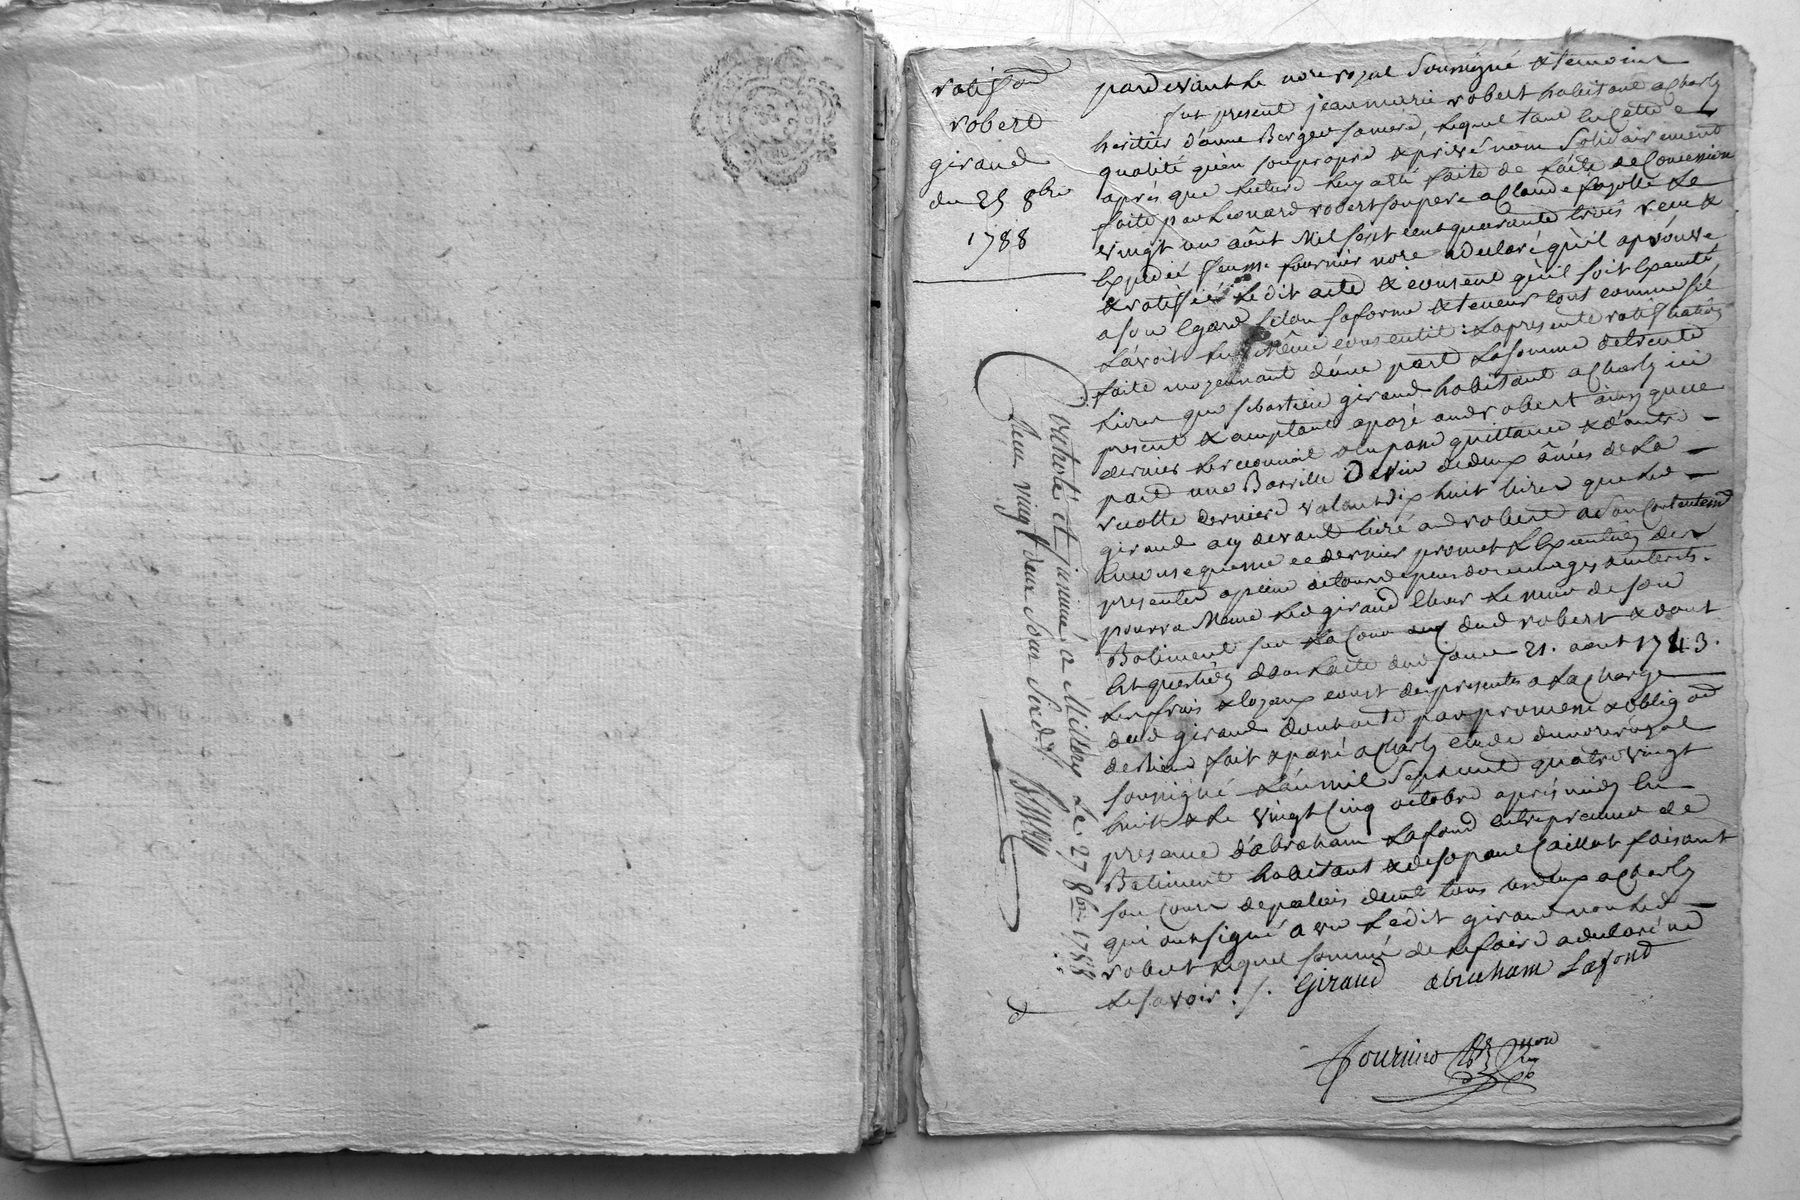 ratif.on
robert
giraud
du 25 8bre
1788
pardevant le nore royal soussigné & temoins
fut present jean marie robert habitant a Charly
heritier d'anne Berger sa mere, lequel tant en cette
qualité qu'en son propre & privé nom solidairement
après que lecture luy a été faite de l'acte de Concession
faite par Leonard robert son pere a Claude fayolle le
vingt un août mil sept cent quarante trois reçu &
Expedié par me fournier nore a declaré qu'il aprouve
& ratiffie ledit acte & consent qu'il soit Executé
a son Egard selon sa forme & teneur tout comme s'il
l'avoit luy même consentit : la presente ratiffication
faite moyennant d'une part la somme de trente
livres que sebastien giraud habitant a Charly ici
present & acceptant a payé aud robert ainsy que ce
dernier le reconnoit dont quittance & d'autre
part une Barrille de vin de deux ânées de la
recolte derniere valant dix huit livres que led
giraud a cy devant livré aud robert a son Contentemt
en consequence ce dernier promet l'Execution des
presentes a peine de tous depens dommages interets.
pourra même led giraud Elever le mur de son
Batiment sur la Cour dud robert & dont
Est question dans l'acte dud jour 21. aout 1743.
les frais & loyaux coust des presentes a la charge
dud giraud dont acte par promesse & obligon
de biens fait & passé a Charly etude du nore royal
soussigné l'an mil sept cent quatre vingt
huit & le vingt Cinq octobre après midy En
presence d'abraham Lafond entrepreneur de
Batiment habitant & de sr paul Caillot faisant
son Cours de palais demt tous les deux a Charly
qui ont signé avec ledit giraud non led
robert lequel sommé de le faire a declaré ne
le savoir ./.
Giraud abraham Lafond
fournier
Controlé et insinué a Millery Le 27 8bre 1788
Reçu vingt deux sous six d.